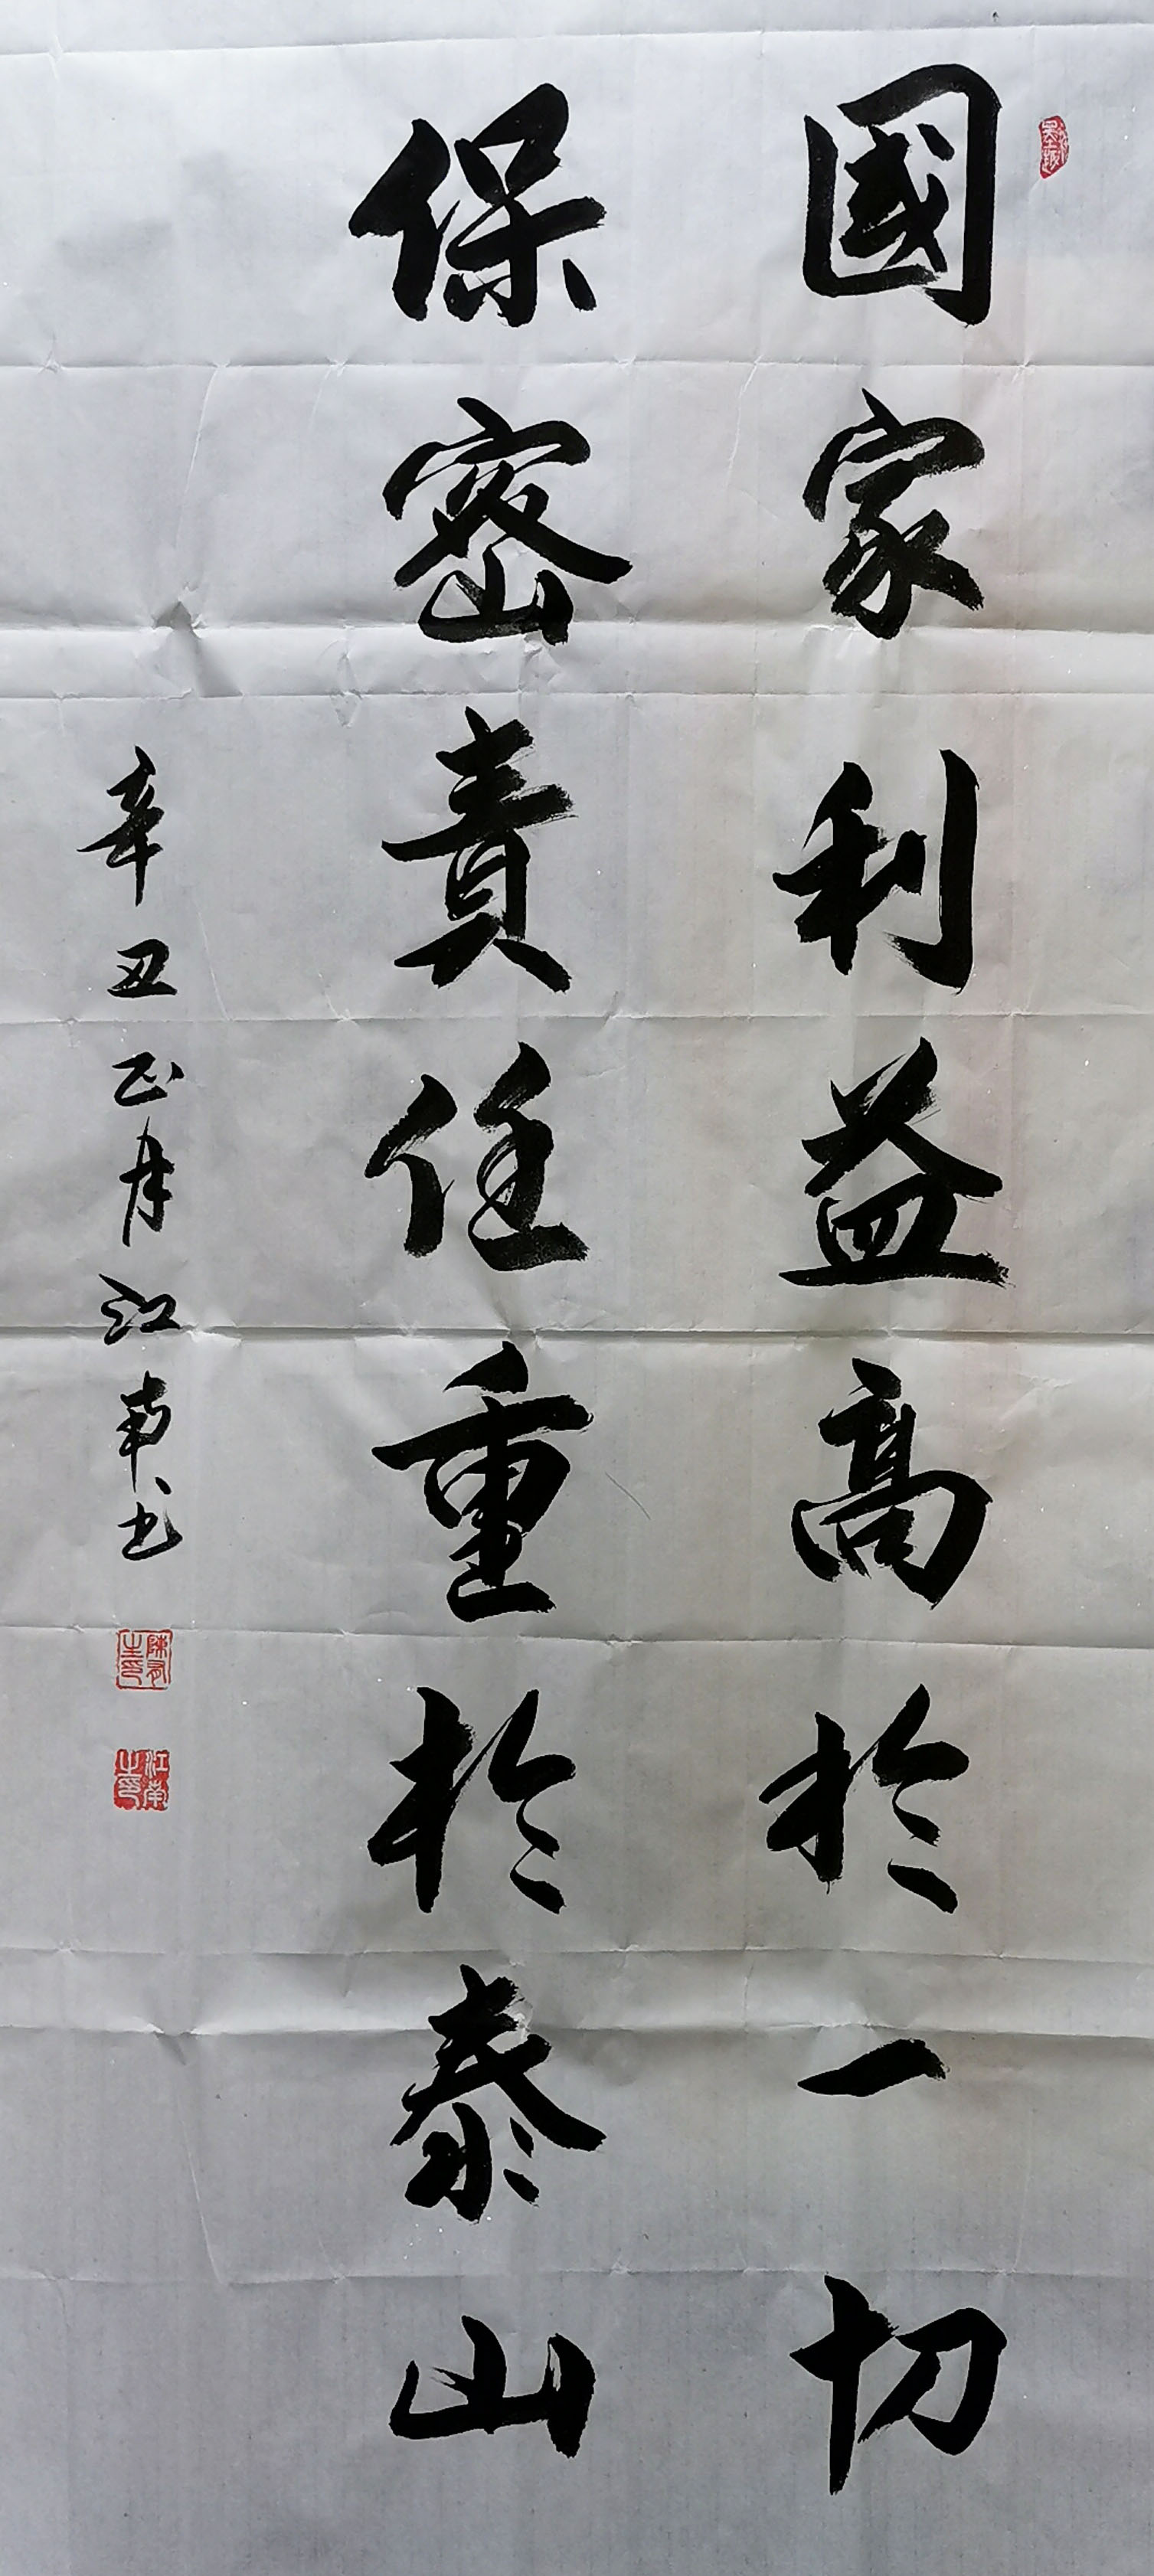 國家利益高於一切
保密責任重於泰山
辛丑正月江南书